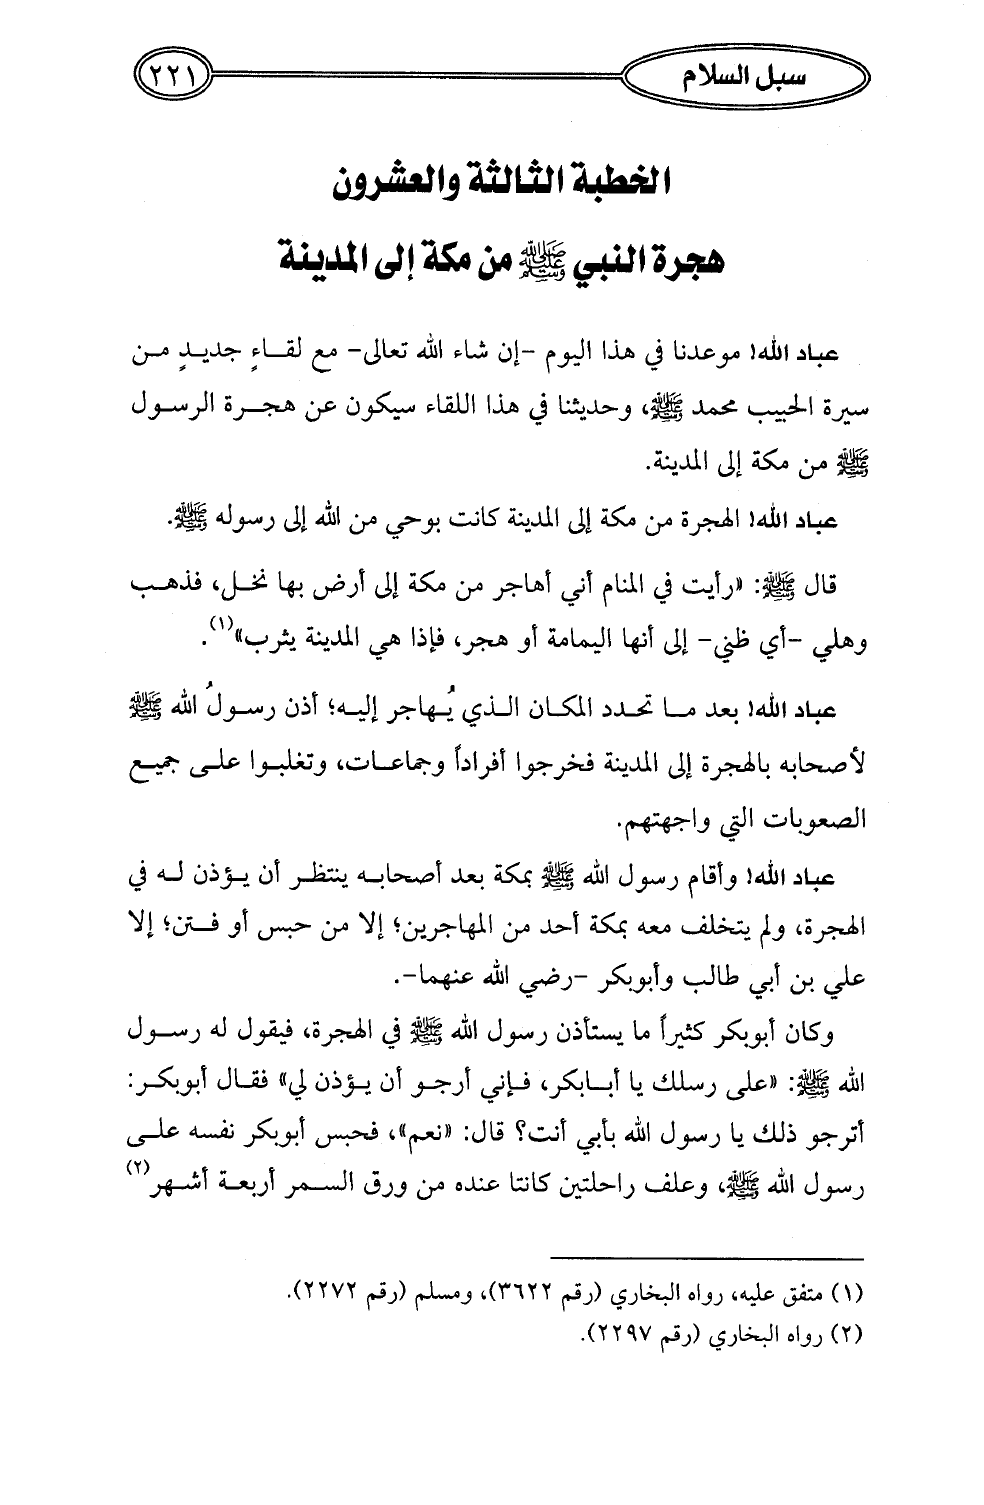 سبل السلام
٢٢١
الخطبة الثالثة والعشرون
هجرة النبي ﷺ من مكة إلى المدينة
عباد الله! موعدنا في هذا اليوم -إن شاء الله تعالى- مع لقاءٍ جديدٍ من
سيرة الحبيب محمد ﷺ، وحديثنا في هذا اللقاء سيكون عن هجرة الرسول
ﷺ من مكة إلى المدينة.
عباد الله! الهجرة من مكة إلى المدينة كانت بوحي من الله إلى رسوله ﷺ.
قال ﷺ: «رأيت في المنام أني أهاجر من مكة إلى أرض بها نخل، فذهب
وهلي -أي ظني- إلى أنها اليمامة أو هجر، فإذا هي المدينة يثرب»(١).
عباد الله! بعد ما تحدد المكان الذي يُهاجر إليه؛ أذن رسولُ الله ﷺ
لأصحابه بالهجرة إلى المدينة فخرجوا أفراداً وجماعات، وتغلبوا على جميع
الصعوبات التي واجهتهم.
عباد الله! وأقام رسول الله ﷺ بمكة بعد أصحابه ينتظر أن يؤذن له في
الهجرة، ولم يتخلف معه بمكة أحد من المهاجرين؛ إلا من حبس أو فتن؛ إلا
علي بن أبي طالب وأبوبكر -رضي الله عنهما-.
وكان أبوبكر كثيراً ما يستأذن رسول الله ﷺ في الهجرة، فيقول له رسول
الله ﷺ: «على رسلك يا أبابكر، فإني أرجو أن يؤذن لي» فقال أبوبكر:
أترجو ذلك يا رسول الله بأبي أنت؟ قال: «نعم»، فحبس أبوبكر نفسه على
رسول الله ﷺ، وعلف راحلتين كانتا عنده من ورق السمر أربعة أشهر(٢)
(١) متفق عليه، رواه البخاري (رقم ٣٦٢٢)، ومسلم (رقم ٢٢٧٢).
(٢) رواه البخاري (رقم ٢٢٩٧).